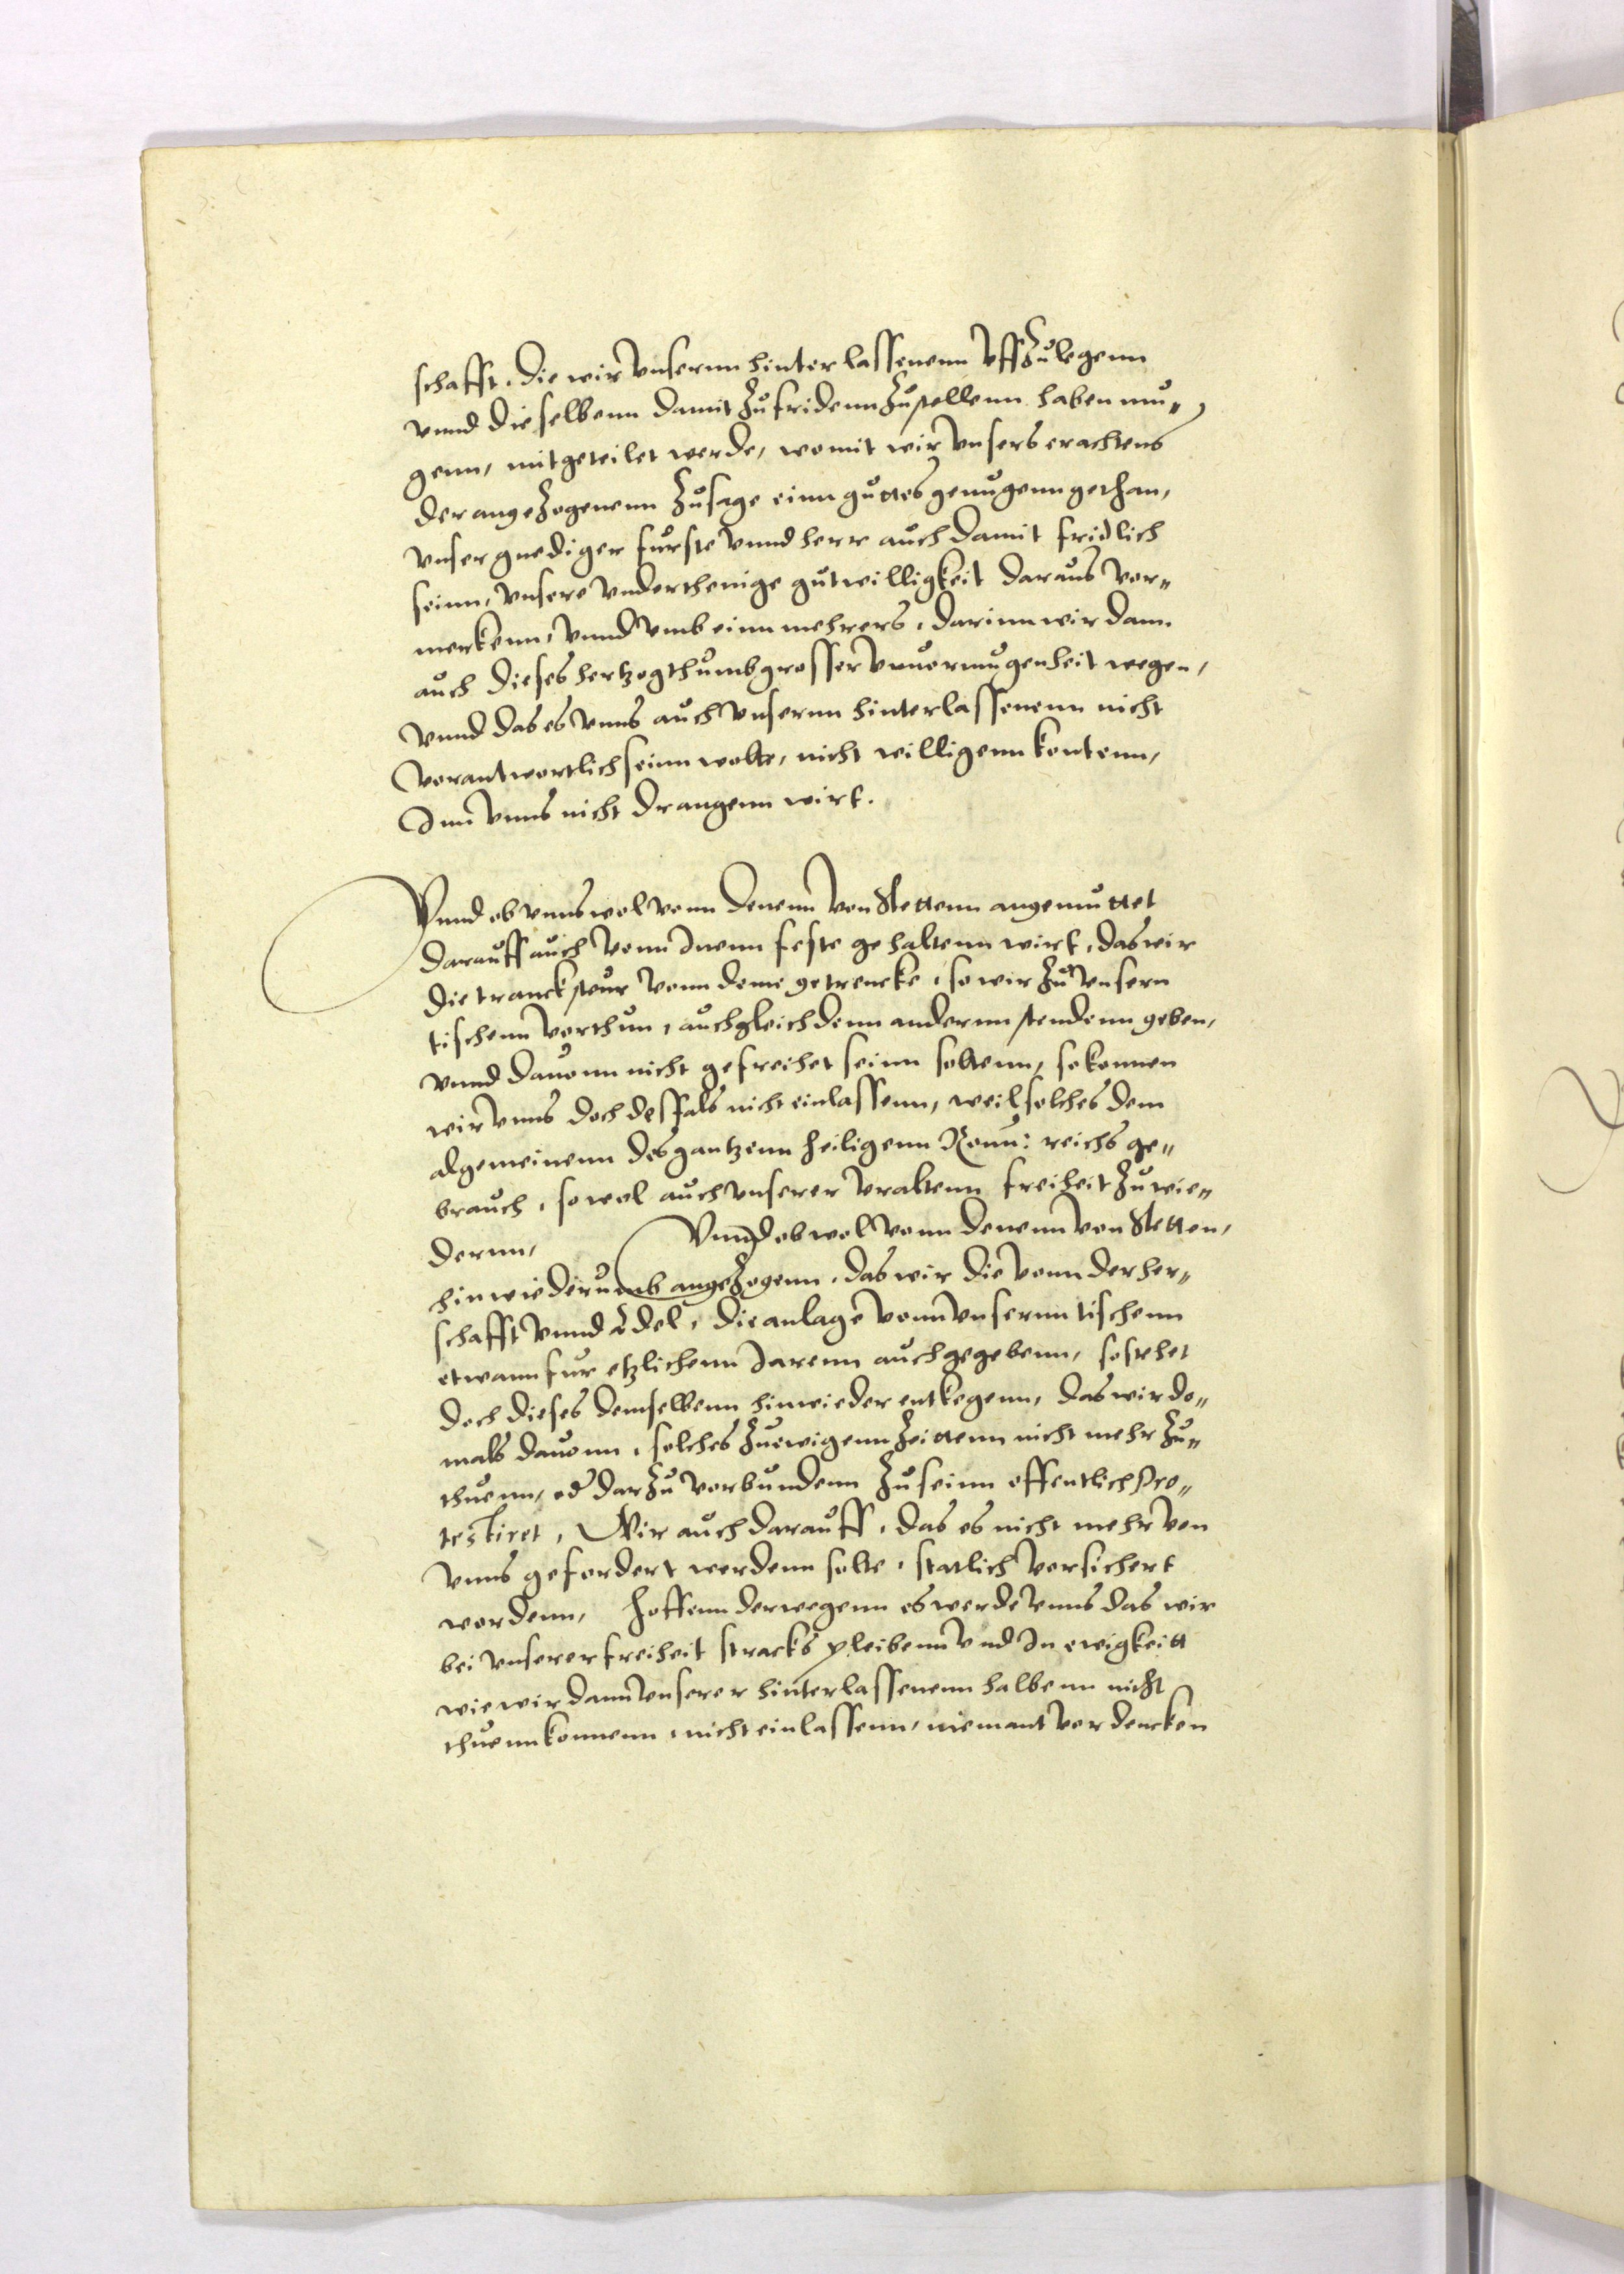 schafft, die wir vnsernn hinterlassenenn vffzulegenn
vnnd dieselbenn damit zufridenn zustellenn haben mu„
genn, mitgeteilet werde, womit wir vnsers erachtens
der angezogenenn zusage einn guttes genugenn gethan,
vnser gnediger furste vnnd herr auch damit fridlich
seinn, vnsere vnderthenige gutwilligkeit daraus vor„
merkenn, vnnd vmb einn mehrers, darinn wir dann
auch dieses hertzogthumb grosser vnuormugenheit wegen,
vnnd das es vnns auch vnsernn hinterlassenenn nicht
vorantwortlich seinn wolte, nicht willigenn kontenn,
Inn vnns nicht drangenn wirt.
Vnnd ob vnns wol vonn denenn von Stettenn angemuttet
darauff auch vonn Inenn feste gehaltenn wirt, das wir
die tranksteur vonn deme getrencke, so wir zu vnsern
tischenn verthun, auch gleich denn andernn stendenn geben,
vnnd dauonn nicht gefreihet seinn soltenn, so konnen
wir vnns doch desfals nicht einlassenn, weil solches dem
algemeinenn des gantzenn heiligenn Romi: reichs ge„
brauch, so wol auch vnserer vraltenn freiheit zu wie„
dernn, Vnnd ob wol vonn denenn von Stetten,
hinwiederumb angezogenn, das wir die vonn der her„
schafft vnnd Adel, die anlage vonn vnsernn tischenn
etwann fur etzlichenn Jarenn auch gegebenn, so stehet
doch dieses demselbenn hinwieder entkegenn, das wir do„
mals dauonn, solches zu ewigenn zeittenn nicht mehr zu„
thuenn, od darzu vorbundenn zu seinn offentlich pro„
testiret, Wir auch darauff, das es nicht mehr von
vnns gefordert werdenn solte, statlich vorsichert
wordenn, hoffenn derwegenn es werde vnns das wir
bei vnserer freiheit stracks pleibenn vnd In ewigkeitt
wie wir dann vnserer hinterlassenenn halbenn nicht
thuenn konnenn, nicht einlassenn, niemant vordencken